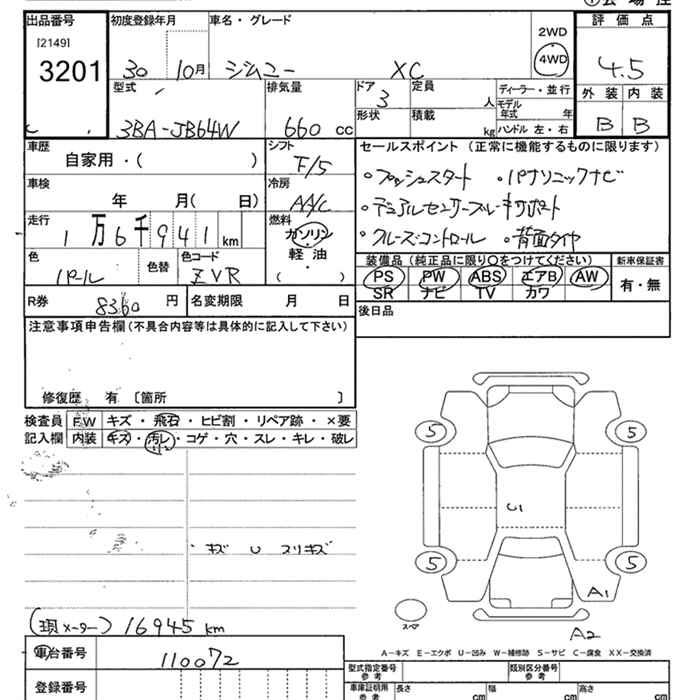 出品番号 初度登録年月 車名・グレード 評価点
[2149]
3201 30 10月 ジムニー XC 2WD 4WD 4.5
型式 排気量 ドア 定員 ディーラー・並行 外装 内装
3 人 モデル年式 年
3BA-JB64W 660 cc 形状 積載 kg ハンドル 左・右 B B
車歴 シフト セールスポイント (正常に機能するものに限ります)
自家用・( ) F/5
。プッシュスタート 。パナソニックナビ
車検 冷房
年 月( 日) AA/C 。デュアルセンサーブレーキサポート
走行 燃料
1万6千941km ガソリン 。クルーズコントロール 。背面タイヤ
色 色替 色コード 軽油 装備品 (純正品に限り○をつけてください) 新車保証書
パール ZVR ( ) PS PW ABS エアB AW 有・無
SR ナビ TV カワ
R券 8360 円 名変期限 月 日 後日品
注意事項申告欄(不具合内容等は具体的に記入して下さい)
修復歴 有 〔箇所 〕
検査員 FW キズ・飛石・ヒビ割・リペア跡・×要
記入欄 内装 キズ・汚レ・コゲ・穴・スレ・キレ・破レ
5 5
C1
キズ U スリキズ
5 5
A1
(現メーター) 16945 km
スペア
A2
A-キズ E-エクボ U-凹み W-補修跡 S-サビ C-腐食 XX-交換済
車台番号 110072
型式指定番号 参考 類別区分番号 参考
登録番号 車庫証明用 参考 長さ cm 幅 cm 高さ cm